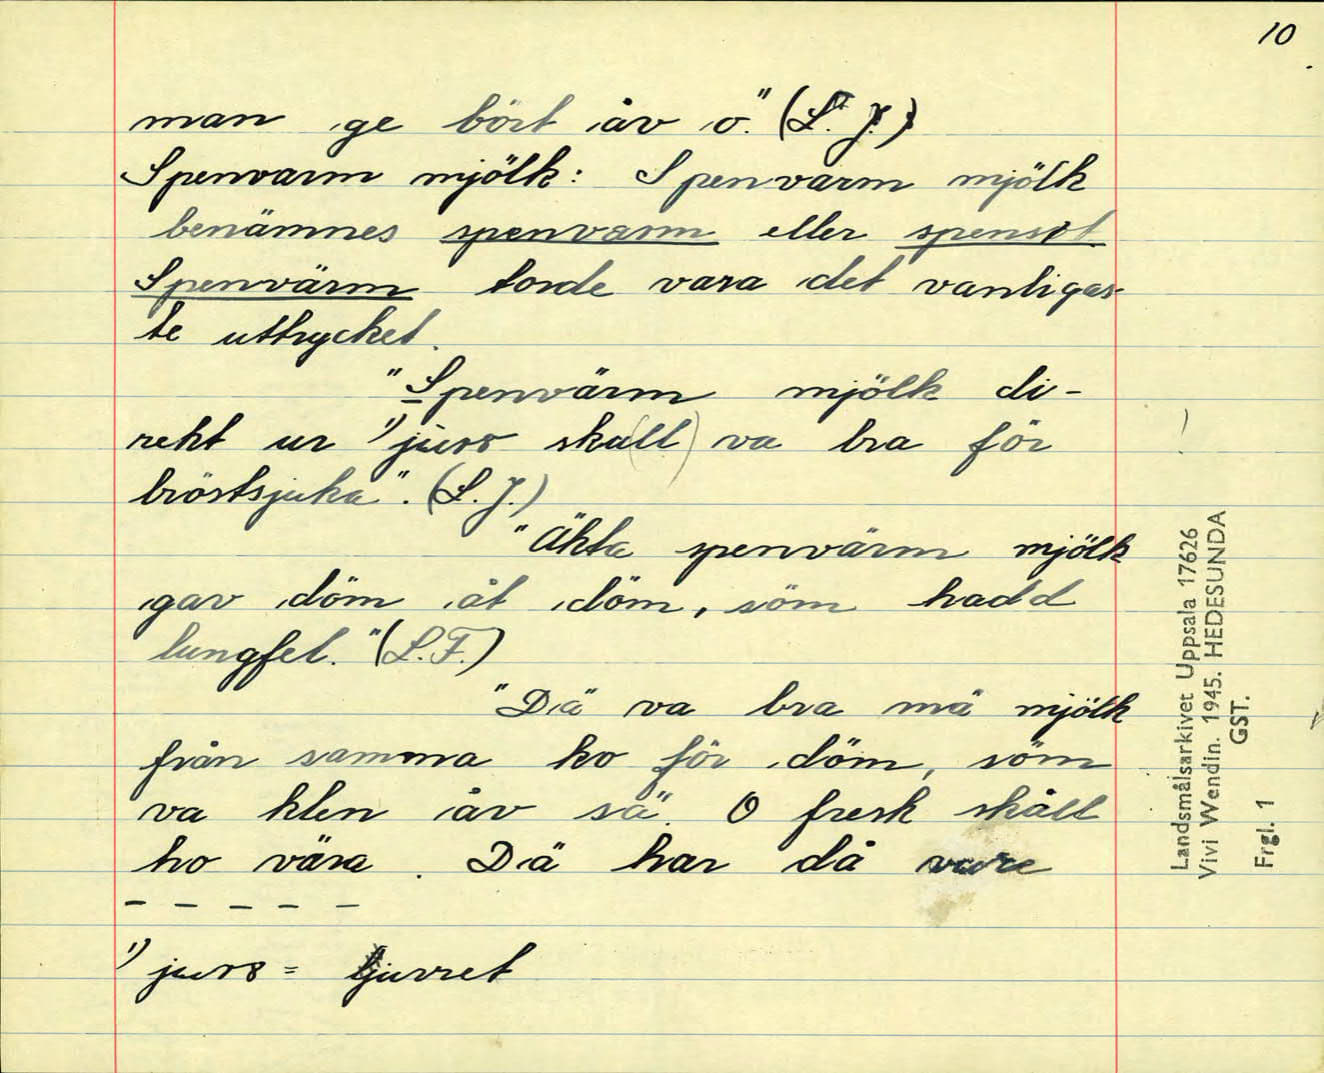 10
man ge bört åv o." (L. J.)
Spenvarm mjölk: Spenvarm mjölk
benämnes spenvarm eller
Spenvärm torde vara det vanligas-
te uttrycket.
"Spenvärm mjölk di-
rekt ur 1) juvs skall va bra för
bröstsjuka". (L. J.)
"Äkta spenvärm mjölk
gav döm åt döm, söm hadd
lungfel." (L.F.)
"Dä va bra mä mjölk
från samma ko för döm, söm
va klen åv sä". O fresk skåll
ho vära. Dä har då vare
- - - - -
1) = juvret
Landsmålsarkivet Uppsala 17626
Vivi Wendin. 1945. HEDESUNDA
GST.
Frgl. 1